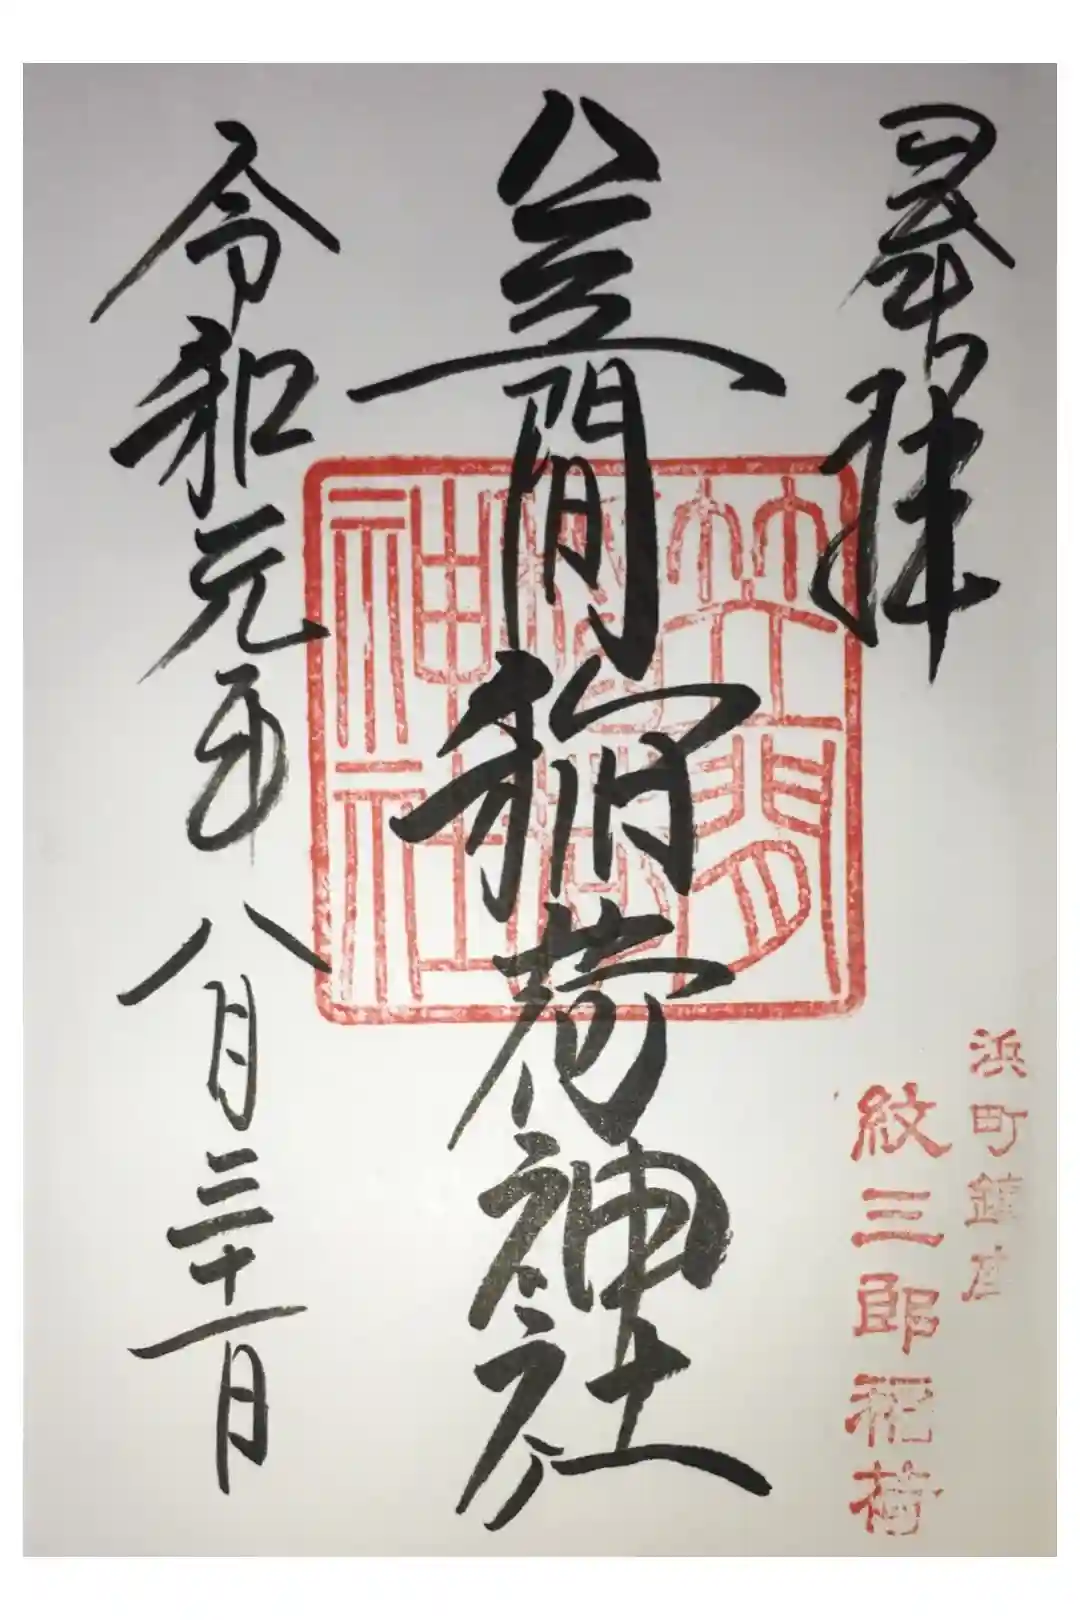 奉拝
笠間稲荷神社
令和元年八月三十一日
笠間
稲荷
神社
浜町鎮座
紋三郎稲荷